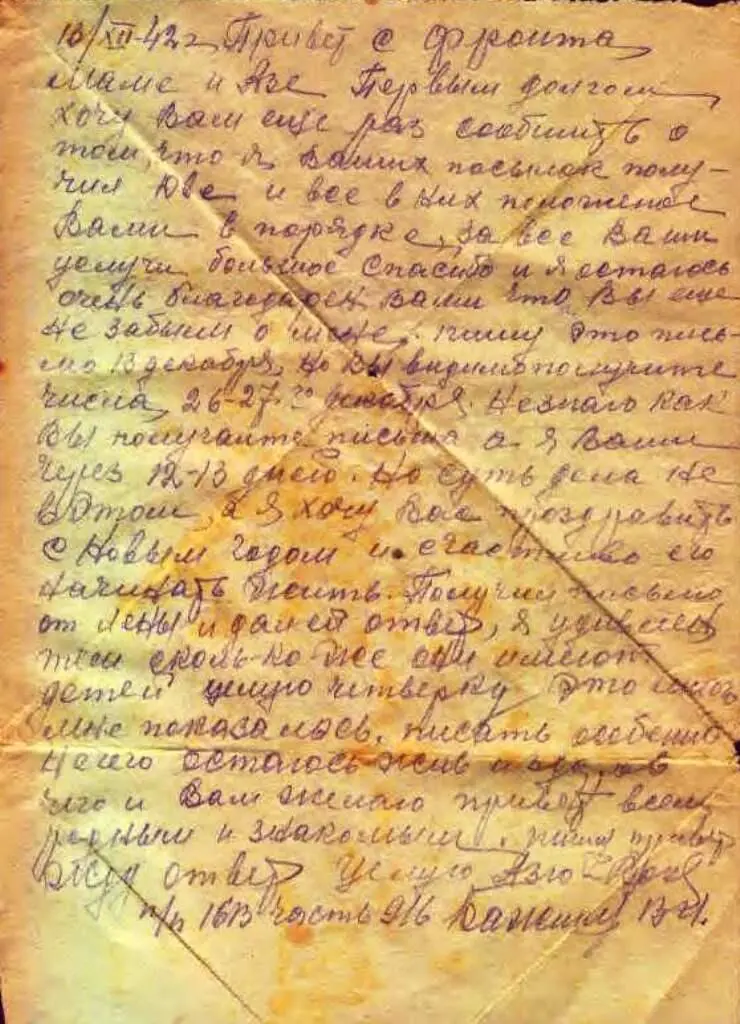 13/XII-42 г. Привет с фронта,
Маме и Азе Первым долгом,
хочу Вам еще раз сообщить о
том, что я Ваших посылок полу-
чил две и все в них положеное
Вами в порядке, за все Ваши
услуги большое спасибо и я остаюсь
очень благодарен вами что Вы еще
не забыли о мне. пишу это пись-
мо 13 декабря, но Вы видимо получите
числа, 26-27го декабря. Незнаю как
Вы получаите письма а я Ваши
через 12-13 дней. Но суть дела не
в этом, а я хочу Вас проздравить
с Новым годом и счастливо его
начинать жить. Получил письмо
от Лены и дал ей ответ, я удивлен
тем сколь-ко же они имеют
детей целую четверку это
мне показалось. писать особенно
нечего остаюсь жив и здоров
чего и Вам желаю привет всем
родным и знакомым. привет
жду ответ целую Азю
п/п 1613 часть 916